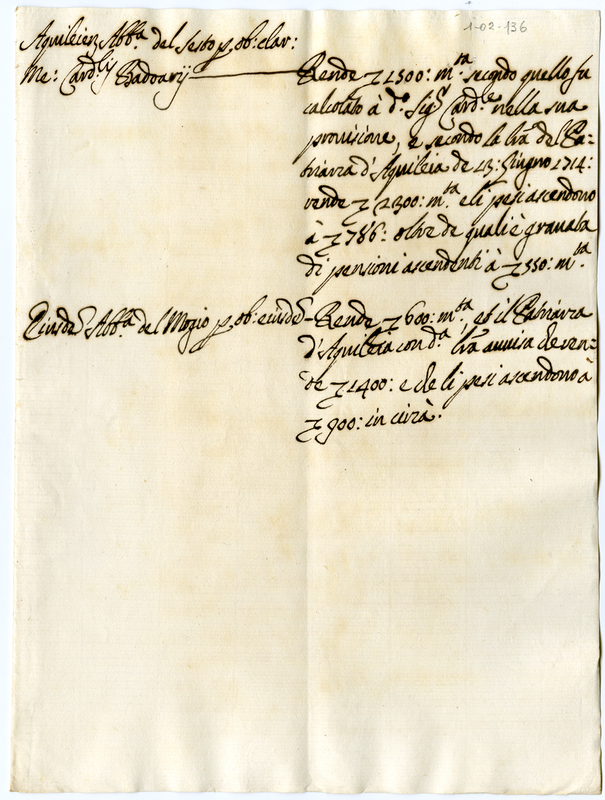 1-02-136
Aquileien Abb.ª del Sesto p ob: clar:
Me: Card.lis Badoarij
Rende 1500: m.ta secondo quello fu
calcolato à d.º Sig.r Card.le nella sua
provisione, e secondo la lra del Pa=
triarca d'Aquileia de 13: Giugno 1714:
rende 2300: m.ta e li pesi ascendono
à 786: oltre de quali è gravata
di pensioni ascendenti à 550: m.ta
Eiusd. Abb.ª del Mozio p ob: eiusd.
Rende 600: m.ta, et il Patriarca
d'Aquileia con d.ª lra avvisa che ren=
de 1400: e che li pesi ascendono à
900: in circà.